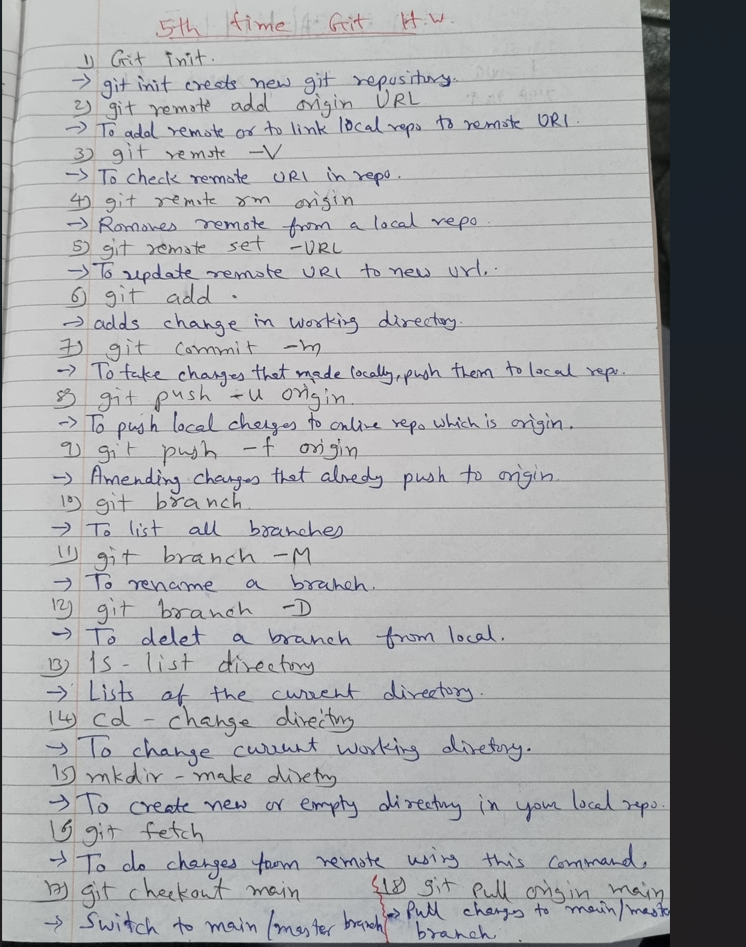 5th time Git H.W.
1) Git init.
→ git init creats new git repository.
2) git remote add origin URL
→ To add remote or to link local repo to remote URl.
3) git remote -V
→ To check remote URl in repo.
4) git remote rm origin
→ Romoves remote from a local repo
5) git remote set -URL
→ To update remote URl to new url.
6) git add .
→ adds change in working directory.
7) git commit -m
→ To take changes that made locally, push them to local repo.
8) git push -u origin.
→ To push local chenges to online repo which is origin.
9) git push -f origin
→ Amending changes that alredy push to origin.
10) git branch.
→ To list all branches
11) git branch -M
→ To rename a branch.
12) git branch -D
→ To delet a branch from local.
13) ls - list directory
→ Lists of the current directory.
14) cd - change directory
→ To change current working diretory.
15) mkdir - make diretry
→ To create new or empty directory in your local repo.
16) git fetch
→ To do changes from remote using this command.
17) git checkout main
→ Switch to main/master branch
18) git Pull origin main
→ Pull charges to main/maste
branch.